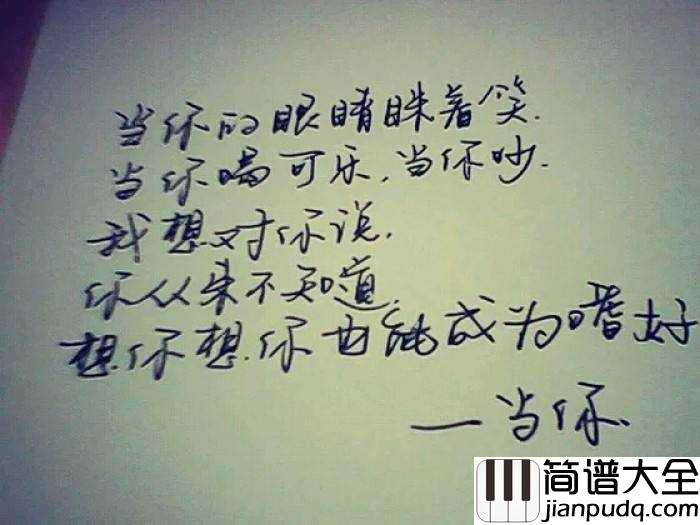 当你的眼睛眯着笑.
当你喝可乐,当你吵.
我想对你说.
你从来不知道.
想你想你也能成为嗜好
—当你.
简谱大全
jianpudq.com